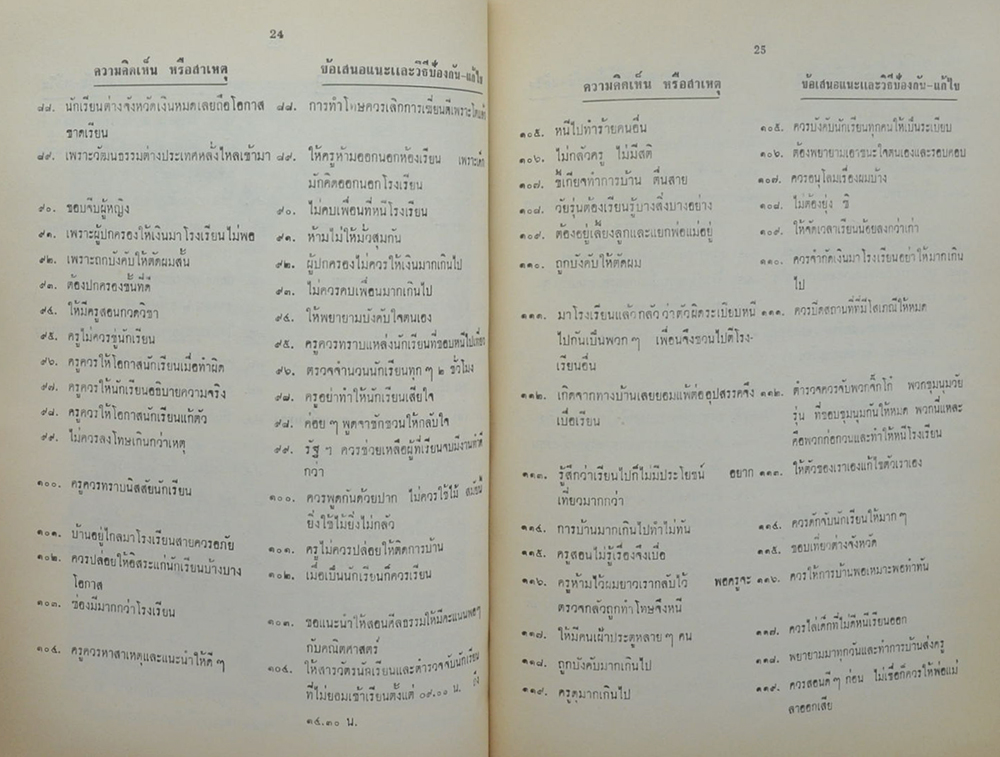 24
ความคิดเห็น หรือสาเหตุ
๘๘. นักเรียนต่างจังหวัดเงินหมดเลยถือโอกาส
ขาดเรียน
๘๙. เพราะวัฒนธรรมต่างประเทศหลั่งไหลเข้ามา
๙๐. ชอบจีบผู้หญิง
๙๑. เพราะผู้ปกครองให้เงินมาโรงเรียนไม่พอ
๙๒. เพราะถูกบังคับให้ตัดผมสั้น
๙๓. ต้องปกครองชั้นที่ดี
๙๔. ให้มีครูสอนกวดวิชา
๙๕. ครูไม่ควรขู่นักเรียน
๙๖. ครูควรให้โอกาสนักเรียนเมื่อทำผิด
๙๗. ครูควรให้นักเรียนอธิบายความจริง
๙๘. ครูควรให้โอกาสนักเรียนแก้ตัว
๙๙. ไม่ควรลงโทษเกินกว่าเหตุ
๑๐๐. ครูควรทราบนิสสัยนักเรียน
๑๐๑. บ้านอยู่ไกลมาโรงเรียนสายควรอภัย
๑๐๒. ควรปล่อยให้อิสระแก่นักเรียนบ้างบาง
โอกาส
๑๐๓. ซ่องมีมากกว่าโรงเรียน
๑๐๔. ครูควรหาสาเหตุและแนะนำให้ดี ๆ
ข้อเสนอแนะและวิธีป้องกัน-แก้ไข
๘๘. การทำโทษควรเลิกการเฆี่ยนตีเพราะโตแล้ว
๘๙. ให้ครูห้ามออกนอกห้องเรียน เพราะเด็ก
มักคิดออกนอกโรงเรียน
๙๐. ไม่คบเพื่อนที่หนีโรงเรียน
๙๑. ห้ามไม่ให้มั่วสุมกัน
๙๒. ผู้ปกครองไม่ควรให้เงินมากเกินไป
๙๓. ไม่ควรคบเพื่อนมากเกินไป
๙๔. ให้พยายามบังคับใจตนเอง
๙๕. ครูควรทราบแหล่งนักเรียนที่ชอบหนีไปเที่ยว
๙๖. ตรวจจำนวนนักเรียนทุก ๆ ๒ ชั่วโมง
๙๗. ครูอย่าทำให้นักเรียนเสียใจ
๙๘. ค่อย ๆ พูดจาชักชวนให้กลับใจ
๙๙. รัฐ ฯ ควรช่วยเหลือผู้ที่เรียนจบมีงานทำดี
กว่า
๑๐๐. ควรพูดกันด้วยปาก ไม่ควรใช้ไม้ สมัยนี้
ยิ่งใช้ไม้ยิ่งไม่กลัว
๑๐๑. ครูไม่ควรปล่อยให้ติดการบ้าน
๑๐๒. เมื่อเป็นนักเรียนก็ควรเรียน
๑๐๓. ขอแนะนำให้สอนศีลธรรมให้มีคะแนนพอ ๆ
กับคณิตศาสตร์
๑๐๔. ให้สารวัตรนักเรียนและตำรวจจับนักเรียน
ที่ไม่ยอมเข้าเรียนตั้งแต่ ๐๙.๐๐ น. ถึง
๑๔.๓๐ น.
25
ความคิดเห็น หรือสาเหตุ
๑๐๕. หนีไปทำร้ายคนอื่น
๑๐๖. ไม่กลัวครู ไม่มีสติ
๑๐๗. ขี้เกียจทำการบ้าน ตื่นสาย
๑๐๘. วัยรุ่นต้องเรียนรู้บางสิ่งบางอย่าง
๑๐๙. ต้องอยู่เลี้ยงลูกและแยกพ่อแม่อยู่
๑๑๐. ถูกบังคับให้ตัดผม
๑๑๑. มาโรงเรียนแล้วกลัวว่าตัวผิดระเบียบหนี
ไปกันเป็นพวก ๆ เพื่อนจึงชวนไปตีโรง-
เรียนอื่น
๑๑๒. เกิดจากทางบ้านเลยยอมแพ้ต่ออุปสรรคจึง
เบื่อเรียน
๑๑๓. รู้สึกว่าเรียนไปก็ไม่มีประโยชน์ อยาก
เที่ยวมากกว่า
๑๑๔. การบ้านมากเกินไปทำไม่ทัน
๑๑๕. ครูสอนไม่รู้เรื่องจึงเบื่อ
๑๑๖. ครูห้ามไว้ผมยาวเรากลับไว้ พอครูจะ
ตรวจกลัวถูกทำโทษจึงหนี
๑๑๗. ให้มีคนเฝ้าประตูหลาย ๆ คน
๑๑๘. ถูกบังคับมากเกินไป
๑๑๙. ครูดุมากเกินไป
ข้อเสนอแนะและวิธีป้องกัน-แก้ไข
๑๐๕. ควรบังคับนักเรียนทุกคนให้เป็นระเบียบ
๑๐๖. ต้องพยายามเอาชนะใจตนเองและรอบคอบ
๑๐๗. ควรอนุโลมเรื่องผมบ้าง
๑๐๘. ไม่ต้องยุ่ง ซิ
๑๐๙. ให้จัดเวลาเรียนน้อยลงกว่าเก่า
๑๑๐. ควรจำกัดเงินมาโรงเรียนอย่าให้มากเกิน
ไป
๑๑๑. ควรปิดสถานที่ที่มีโสเภณีให้หมด
๑๑๒. ตำรวจควรจับพวกจิ๊กโก๋ พวกชุมนุมวัย
รุ่น ที่ชอบชุมนุมกันให้หมด พวกนี้แหละ
คือพวกก่อกวนและทำให้หนีโรงเรียน
๑๑๓. ให้ตัวของเราเองแก้ไขตัวเราเอง
๑๑๔. ควรดักจับนักเรียนให้มาก ๆ
๑๑๕. ชอบเที่ยวต่างจังหวัด
๑๑๖. ควรให้การบ้านพอเหมาะพอทำทัน
๑๑๗. ควรไล่เด็กที่ไม่ดีหนีเรียนออก
๑๑๘. พยายามมาทุกวันและทำการบ้านส่งครู
๑๑๙. ควรสอนดี ๆ ก่อน ไม่เชื่อก็ควรให้พ่อแม่
ลาออกเสีย